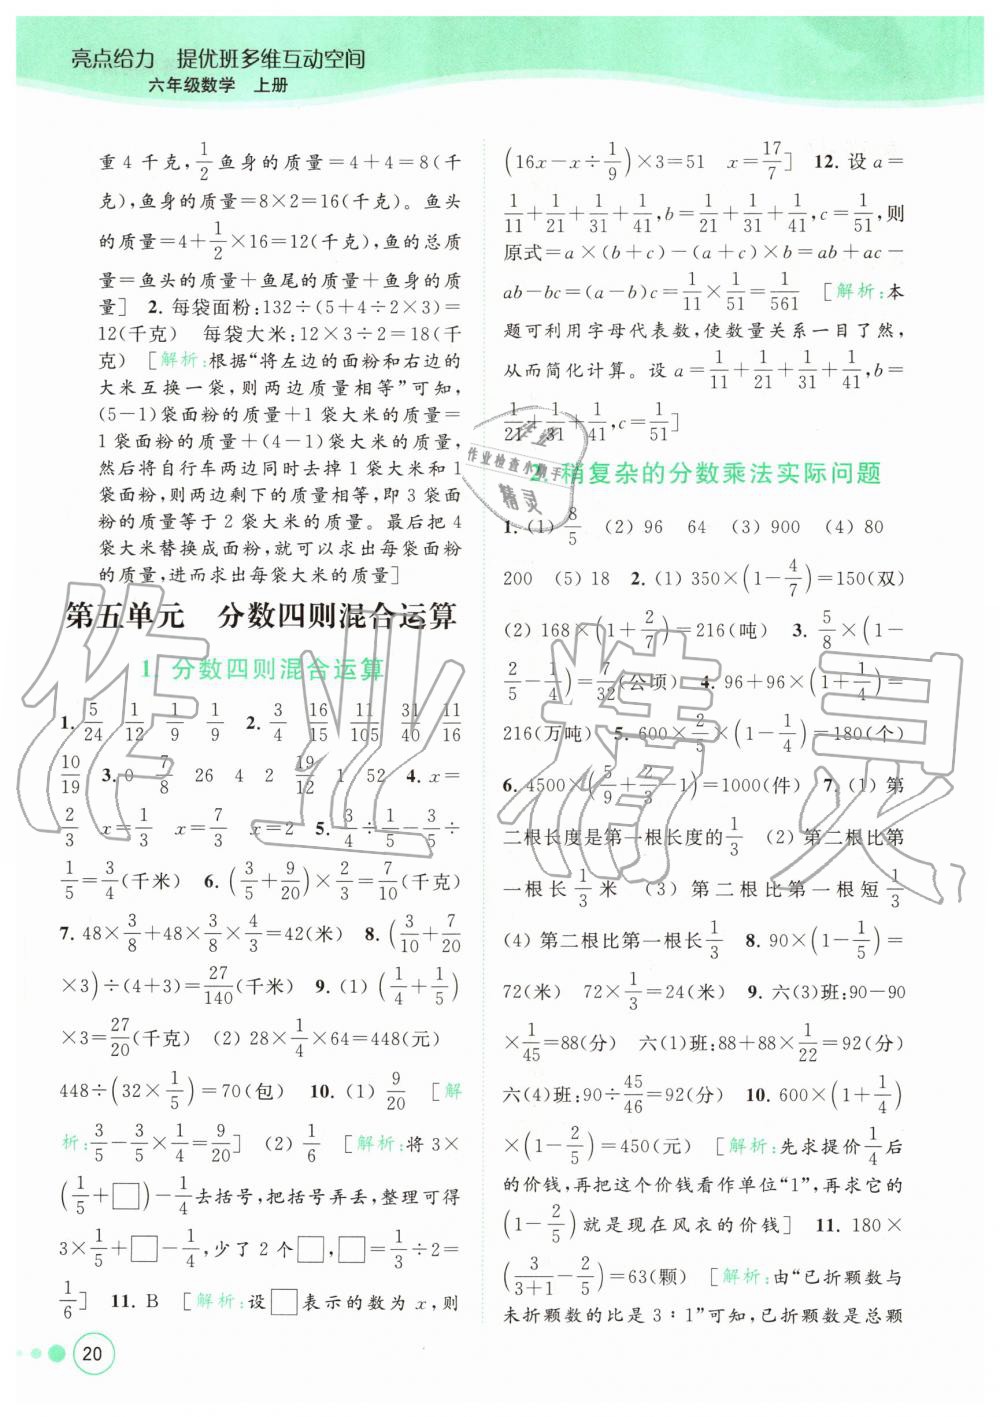 亮点给力 提优班多维互动空间
六年级数学 上册
重 4 千克,1/2鱼身的质量=4+4=8(千
克),鱼身的质量=8×2=16(千克)。鱼头
的质量=4+1/2×16=12(千克),鱼的总质
量=鱼头的质量+鱼尾的质量+鱼身的质
量] 2. 每袋面粉:132÷(5+4÷2×3)=
12(千克) 每袋大米:12×3÷2=18(千
克) [解析:根据“将左边的面粉和右边的
大米互换一袋,则两边质量相等”可知,
(5-1)袋面粉的质量+1 袋大米的质量=
1 袋面粉的质量+(4-1)袋大米的质量,
然后将自行车两边同时去掉 1 袋大米和
1 袋面粉,则两边剩下的质量相等,即 3 袋面
粉的质量等于 2 袋大米的质量。最后把 4
袋大米替换成面粉,就可以求出每袋面粉
的质量,进而求出每袋大米的质量]
第五单元 分数四则混合运算
1. 分数四则混合运算
1. 5/24 1/12 1/9 1/9 2. 3/4 16/15 11/105 31/40 11/16
10/19 3. 0 7/8 26 4 2 19/12 1 52 4. x=
2/3 x=1/3 x=7/3 x=2 5. 3/4÷1/5-3/5÷
1/5=3/4(千米) 6. (3/5+9/20)×2/3=7/10(千克)
7. 48×3/8+48×3/8×4/3=42(米) 8. (3/10+7/20
×3)÷(4+3)=27/140(千米) 9. (1) (1/4+1/5)
×3=27/20(千克) (2) 28×1/4×64=448(元)
448÷(32×1/5)=70(包) 10. (1) 9/20 [解
析:3/5-3/5×1/4=9/20] (2) 1/6 [解析:将 3×
(1/5+□)-1/4去括号,把括号弄丢,整理可得
3×1/5+□-1/4,少了 2 个□,□=1/3÷2=
1/6] 11. B [解析:设□表示的数为 x,则
(16x-x÷1/9)×3=51 x=17/7] 12. 设 a=
1/11+1/21+1/31+1/41,b=1/21+1/31+1/41,c=1/51,则
原式=a×(b+c)-(a+c)×b=ab+ac-
ab-bc=(a-b)c=1/11×1/51=1/561 [解析:本
题可利用字母代表数,使数量关系一目了然,
从而简化计算。设 a=1/11+1/21+1/31+1/41,b=
1/21+1/31+1/41,c=1/51]
2. 稍复杂的分数乘法实际问题
1. (1) 8/5 (2) 96 64 (3) 900 (4) 80
200 (5) 18 2. (1) 350×(1-4/7)=150(双)
(2) 168×(1+2/7)=216(吨) 3. 5/8×(1-
2/5-1/4)=7/32(公顷) 4. 96+96×(1+1/4)=
216(万吨) 5. 600×2/5×(1-1/4)=180(个)
6. 4500×(5/9+2/3-1)=1000(件) 7. (1) 第
二根长度是第一根长度的1/3 (2) 第二根比第
一根长1/3米 (3) 第二根比第一根短1/3
(4) 第二根比第一根长1/3 8. 90×(1-1/5)=
72(米) 72×1/3=24(米) 9. 六(3)班:90-90
×1/45=88(分) 六(1)班:88+88×1/22=92(分)
六(4)班:90÷45/46=92(分) 10. 600×(1+1/4)
×(1-2/5)=450(元) [解析:先求提价1/4后
的价钱,再把这个价钱看作单位“1”,再求它的
(1-2/5)就是现在风衣的价钱] 11. 180×
(3/3+1-2/5)=63(颗) [解析:由“已折颗数与
未折颗数的比是 3∶1”可知,已折颗数是总颗
20
作业精灵
作业
作业检查小助手
精灵